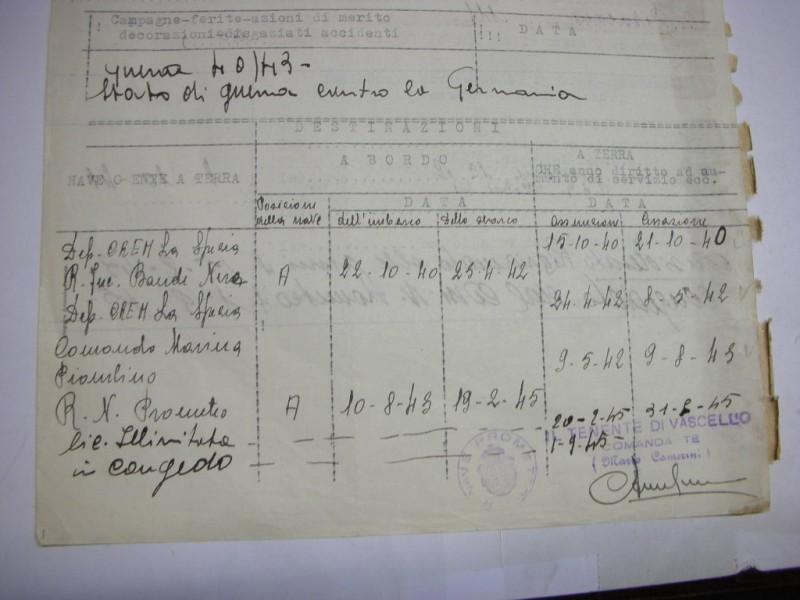 Campagne-ferite-azioni di merito
decorazioni-disgaziati accidenti
DATA
guerra 40/43-
Stato di guerra contro la Germania
DESTINAZIONI
A BORDO
A TERRA
CHE anno diritto ad au-
mento di servizio ecc.
NAVE O ENTE A TERRA
DATA
DATA
Posizione della nave
dell'imbarco
dello sbarco
Assunzione
Cessazione
Dep. CREM La Spezia 15-10-40 21-10-40
R. Inc. Bande Nere A 22-10-40 23-4-42
Dep. CREM La Spezia 24-4-42 8-5-42
Comando Marina 9-5-42 9-8-43
Piombino
R. N. Prometeo A 10-8-43 19-2-45 20-2-45
lic. Illimitata 1-9-45-
in congedo
NAVE PROMETEO
IL TENENTE DI VASCELLO
COMANDANTE
(Mario Camerini)